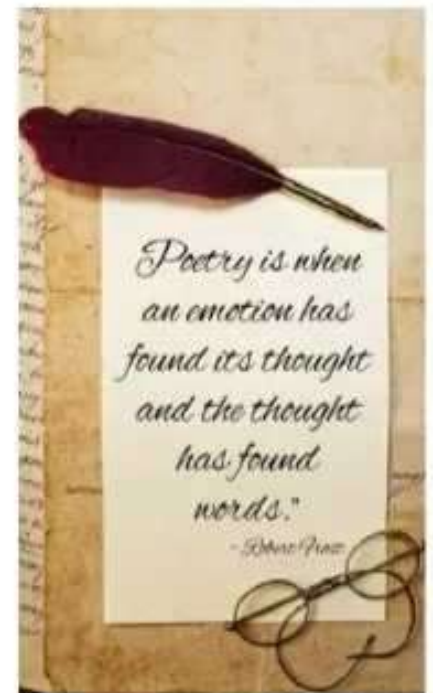 Poetry is when
an emotion has
found its thought
and the thought
has found
words."
- Robert Frost